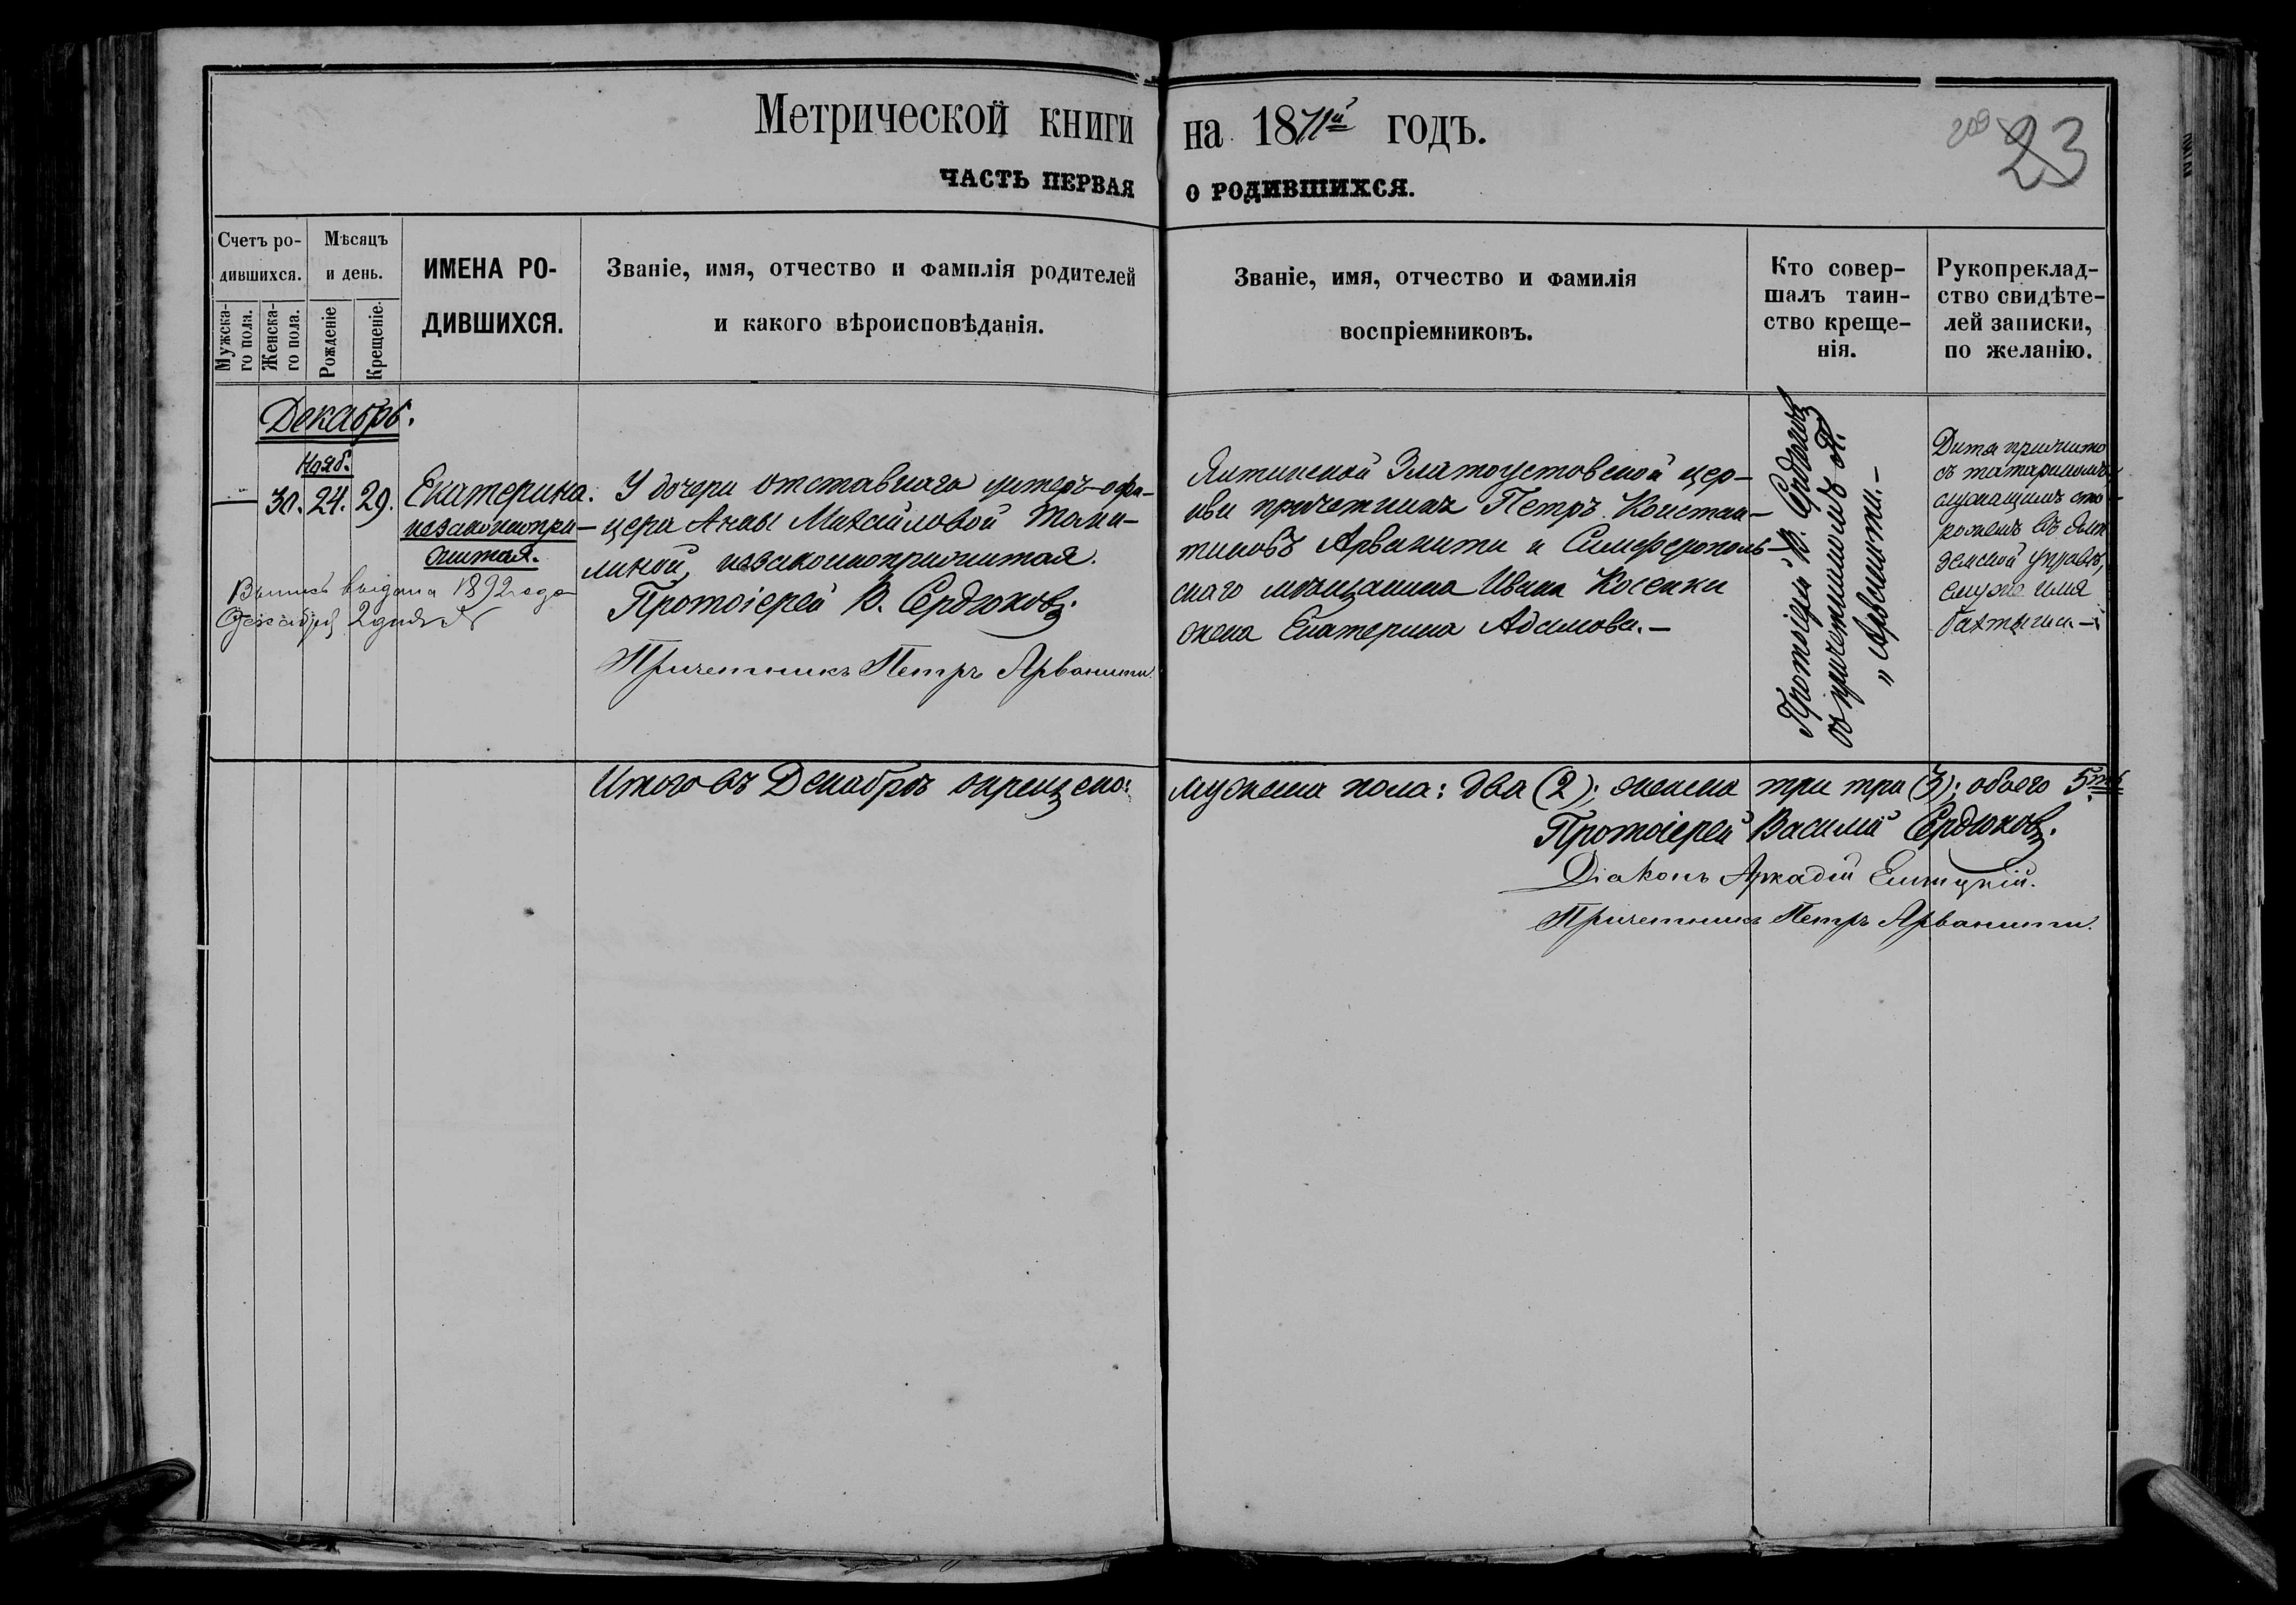 Метрической книги на 1871й годъ.
209
23
ЧАСТЬ ПЕРВАЯ О РОДИВШИХСЯ.
Счетъ ро-
дившихся.
Мужска-
го пола.
Женска-
го пола.
Мѣсяцъ
и день.
Рожденіе
Крещеніе.
ИМЕНА РО-
ДИВШИХСЯ.
Званіе, имя, отчество и фамилія родителей
и какого вѣроисповѣданія.
Званіе, имя, отчество и фамилія
воспріемниковъ.
Кто совер-
шалъ таин-
ство креще-
нія.
Рукоприклад-
ство свидѣте-
лей записки,
по желанію.
Декабрь.
Нояб.
— 30. 24. 29.
Екатерина.
незаконнопри-
житая.
Выпись выдана 1892 года
Декабря 2 дня №
У дочери отставнаго унтеръ-офи-
цера Анны Михайловой
незаконноприжитая.
Протоіерей В. Сердюковъ.
Причетникъ Петръ Арванити.
Ялтинской Златоустовской цер-
кви причетникъ Петръ Констан-
тиновъ Арванити и Симферополь-
скаго мѣщанина Ивана Косенки
жена Екатерина Адамова.—
Протоіерей В. Сердюковъ
съ причетникомъ П.
Арванити.—
Дитя прижито
съ татариномъ,
служащимъ сто-
рожемъ въ Ялт.
земской управѣ,
ему же имя
Итого въ Декабрѣ окрещено: мужеска пола: два (2); женска три три (3); обоего 5ть
Протоіерей Василій Сердюковъ.
Діаконъ Аркадій
Причетникъ Петръ Арванити.